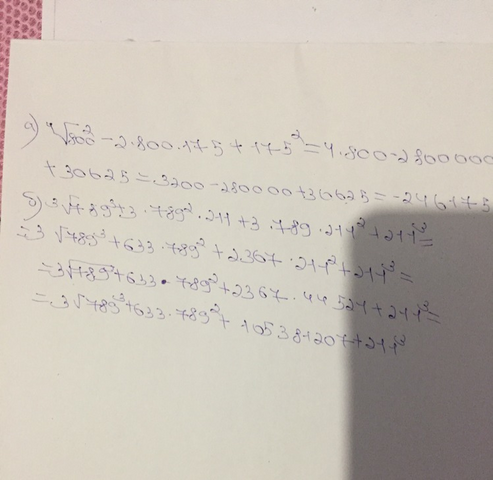 а) ⁴√800² - 2·800·175 + 175² = 4·800 - 280000
+ 30625 = 3200 - 280000 + 30625 = -246175
б) 3√789³ + 3·789²·211 + 3·789·211² + 211³ =
= 3√789³ + 633·789² + 2367·211² + 211³ =
= 3√789³ + 633·789² + 2367·44521 + 211³ =
= 3√789³ + 633·789² + 105381207 + 211³